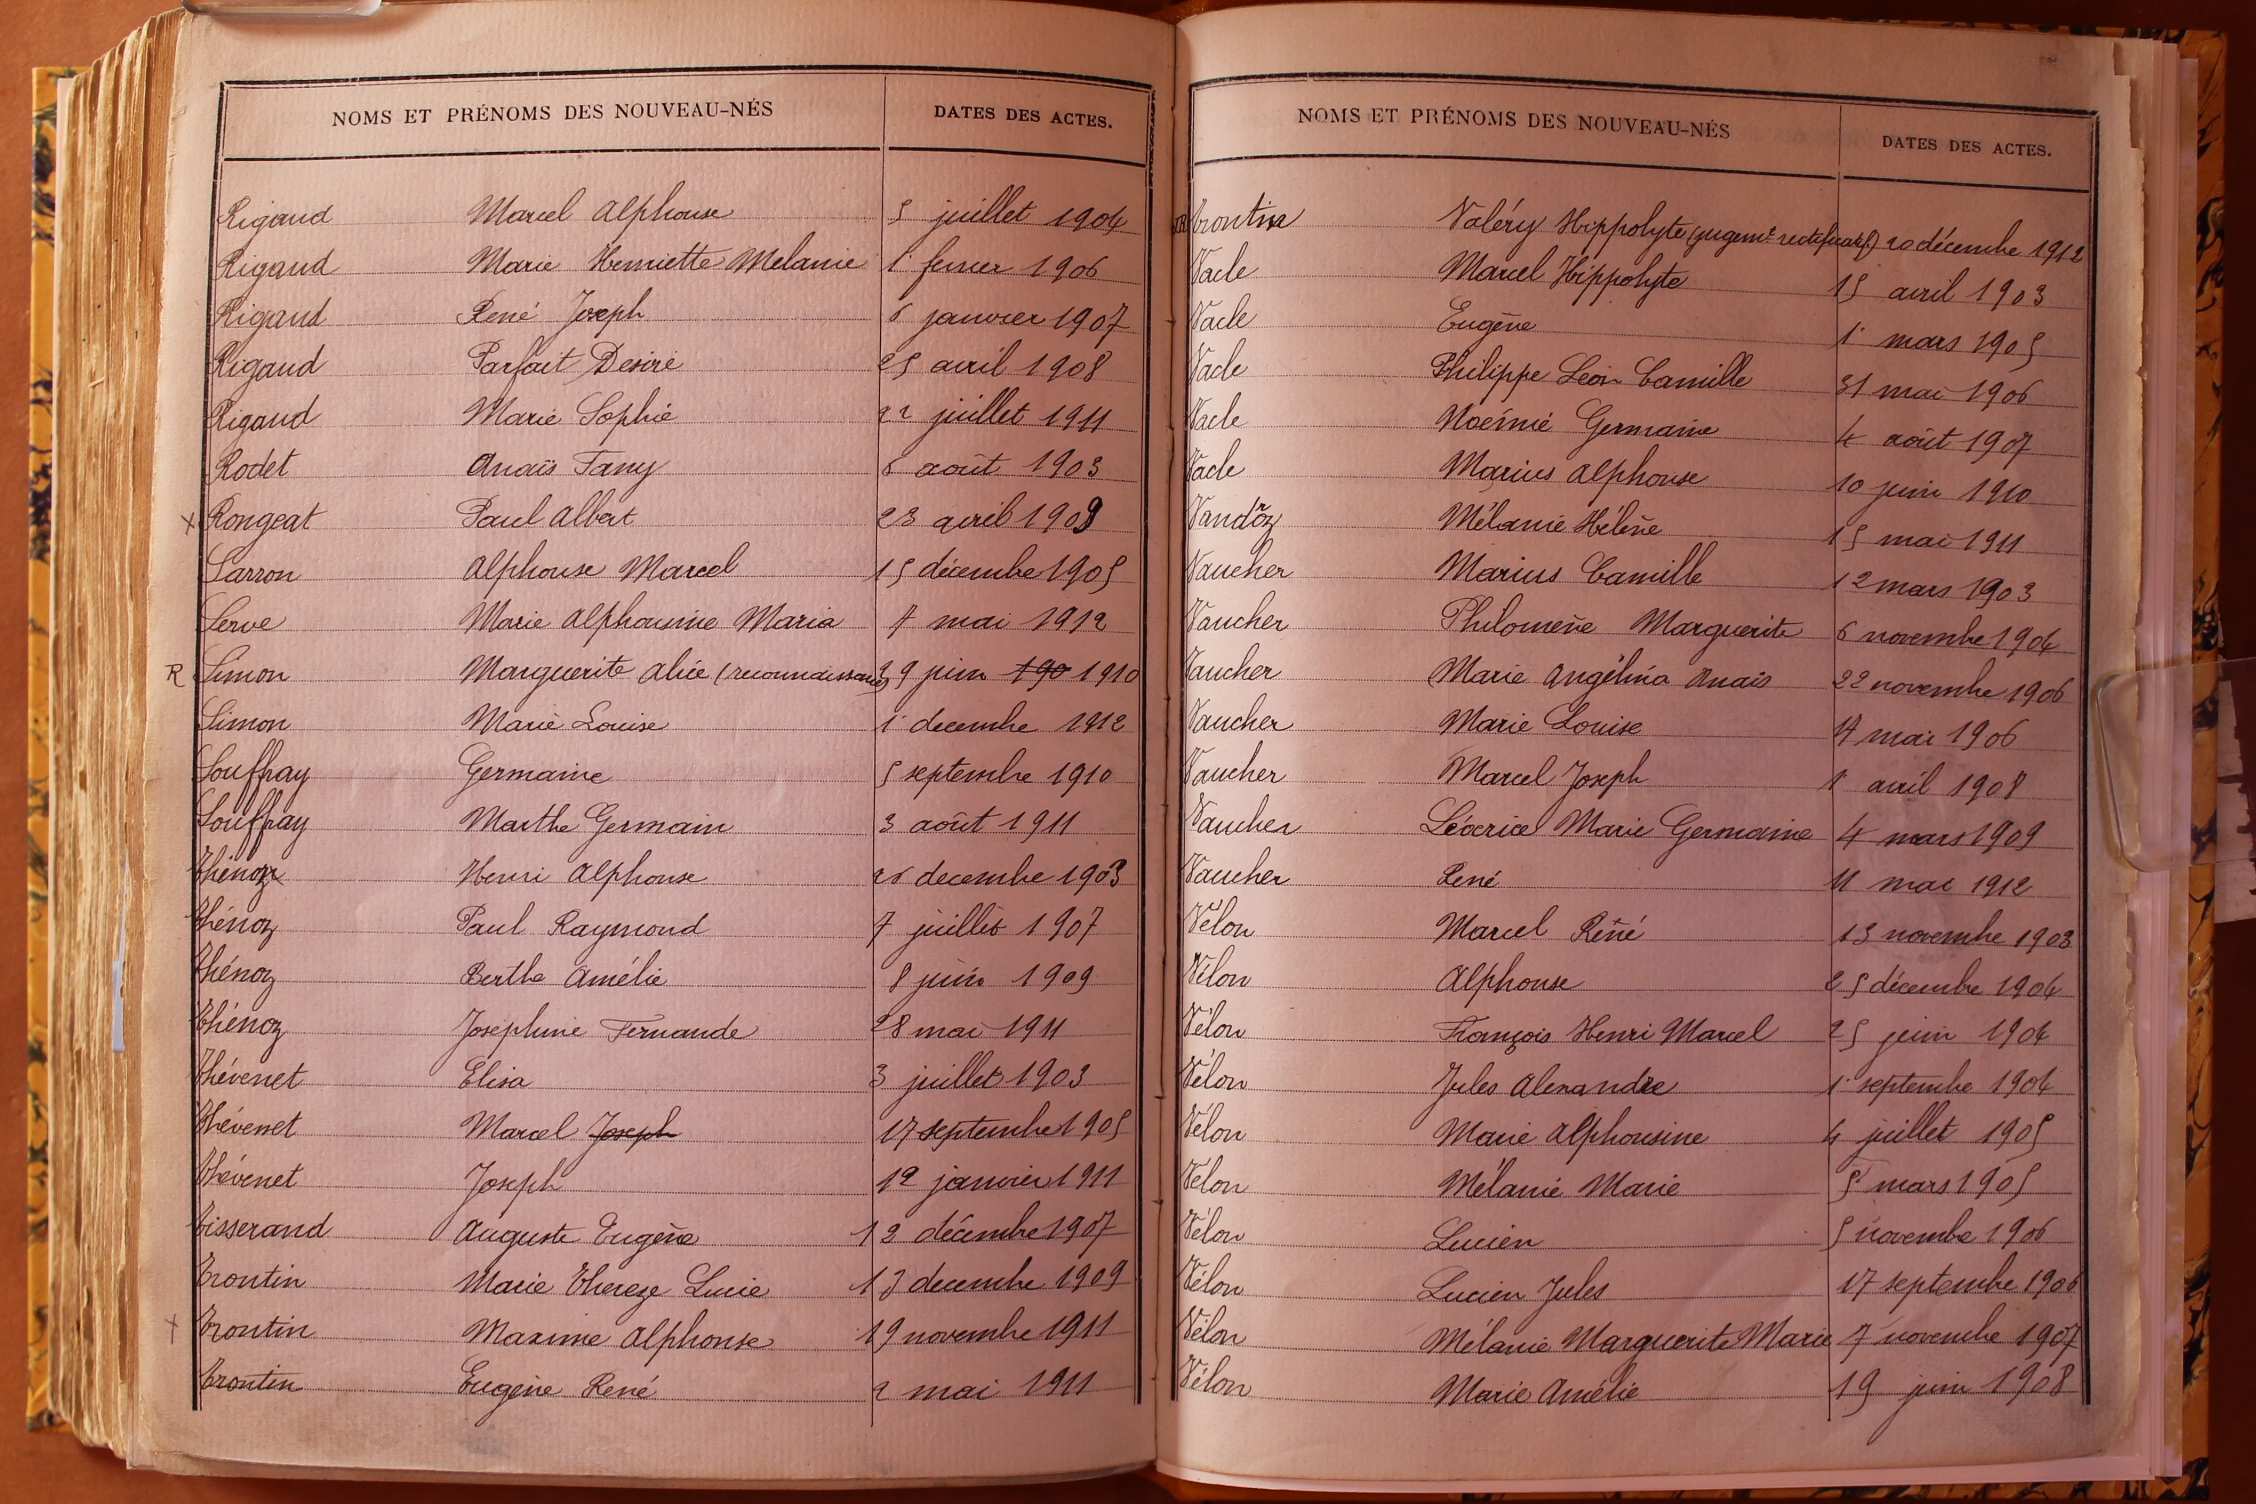 NOMS ET PRÉNOMS DES NOUVEAU-NÉS DATES DES ACTES.
Rigaud Marcel Alphonse 5 juillet 1904
Rigaud Marie Henriette Melanie 1 fevrier 1906
Rigaud René Joseph 6 janvier 1907
Rigaud Parfait Desiré 25 avril 1908
Rigaud Marie Sophie 22 juillet 1911
Rodet Anaïs Fany 6 août 1903
x Rongeat Paul Albert 23 avril 1909
Sarron Alphonse Marcel 15 décembre 1905
Serve Marie Alphonsine Maria 7 mai 1912
R Simon Marguerite Alice (reconnaissance) 29 juin 190 1910
Simon Marie Louise 1 decembre 1912
Souffray Germaine 5 septembre 1910
Souffray Marthe Germain 3 août 1911
Thénoz Henri Alphonse 26 decembre 1903
Thénoz Paul Raymond 7 juillet 1907
Thénoz Berthe Amélie 8 juin 1909
Thénoz Joséphine Fernande 28 mai 1911
Thévenet Elisa 3 juillet 1903
Thévenet Marcel Joseph 17 septembre 1905
Thévenet Joseph 12 janvier 1911
Tisserand Auguste Eugène 12 décembre 1907
Trontin Marie Thereze Lucie 13 decembre 1909
+ Trontin Maxime Alphonse 19 novembre 1911
Trontin Eugène René 2 mai 1911
NOMS ET PRÉNOMS DES NOUVEAU-NÉS DATES DES ACTES.
Trontin Valéry Hippolyte (jugemt rectificatif) 20 décembre 1912
Vacle Marcel Hippolyte 15 avril 1903
Vacle Eugène 1 mars 1905
Vacle Philippe Léon Camille 31 mai 1906
Vacle Noémie Germaine 4 août 1907
Vacle Marius Alphonse 10 juin 1910
Vandoz Mélanie Hélène 15 mai 1911
Vaucher Marius Camille 12 mars 1903
Vaucher Philomène Marguerite 6 novembre 1904
Vaucher Marie Angélina Anaïs 22 novembre 1906
Vaucher Marie Louise 17 mai 1906
Vaucher Marcel Joseph 1 avril 1908
Vaucher Marie Germaine 4 mars 1909
Vaucher René 11 mai 1912
Vélon Marcel René 13 novembre 1903
Vélon Alphonse 25 décembre 1904
Vélon François Henri Marcel 25 juin 1904
Vélon Jules Alexandre 1 septembre 1904
Vélon Marie Alphonsine 4 juillet 1905
Vélon Mélanie Marie 5 mars 1905
Vélon Lucien 5 novembre 1906
Vélon Lucien Jules 17 septembre 1906
Vélon Mélanie Marguerite Marie 7 novembre 1907
Vélon Marie Amélie 19 juin 1908